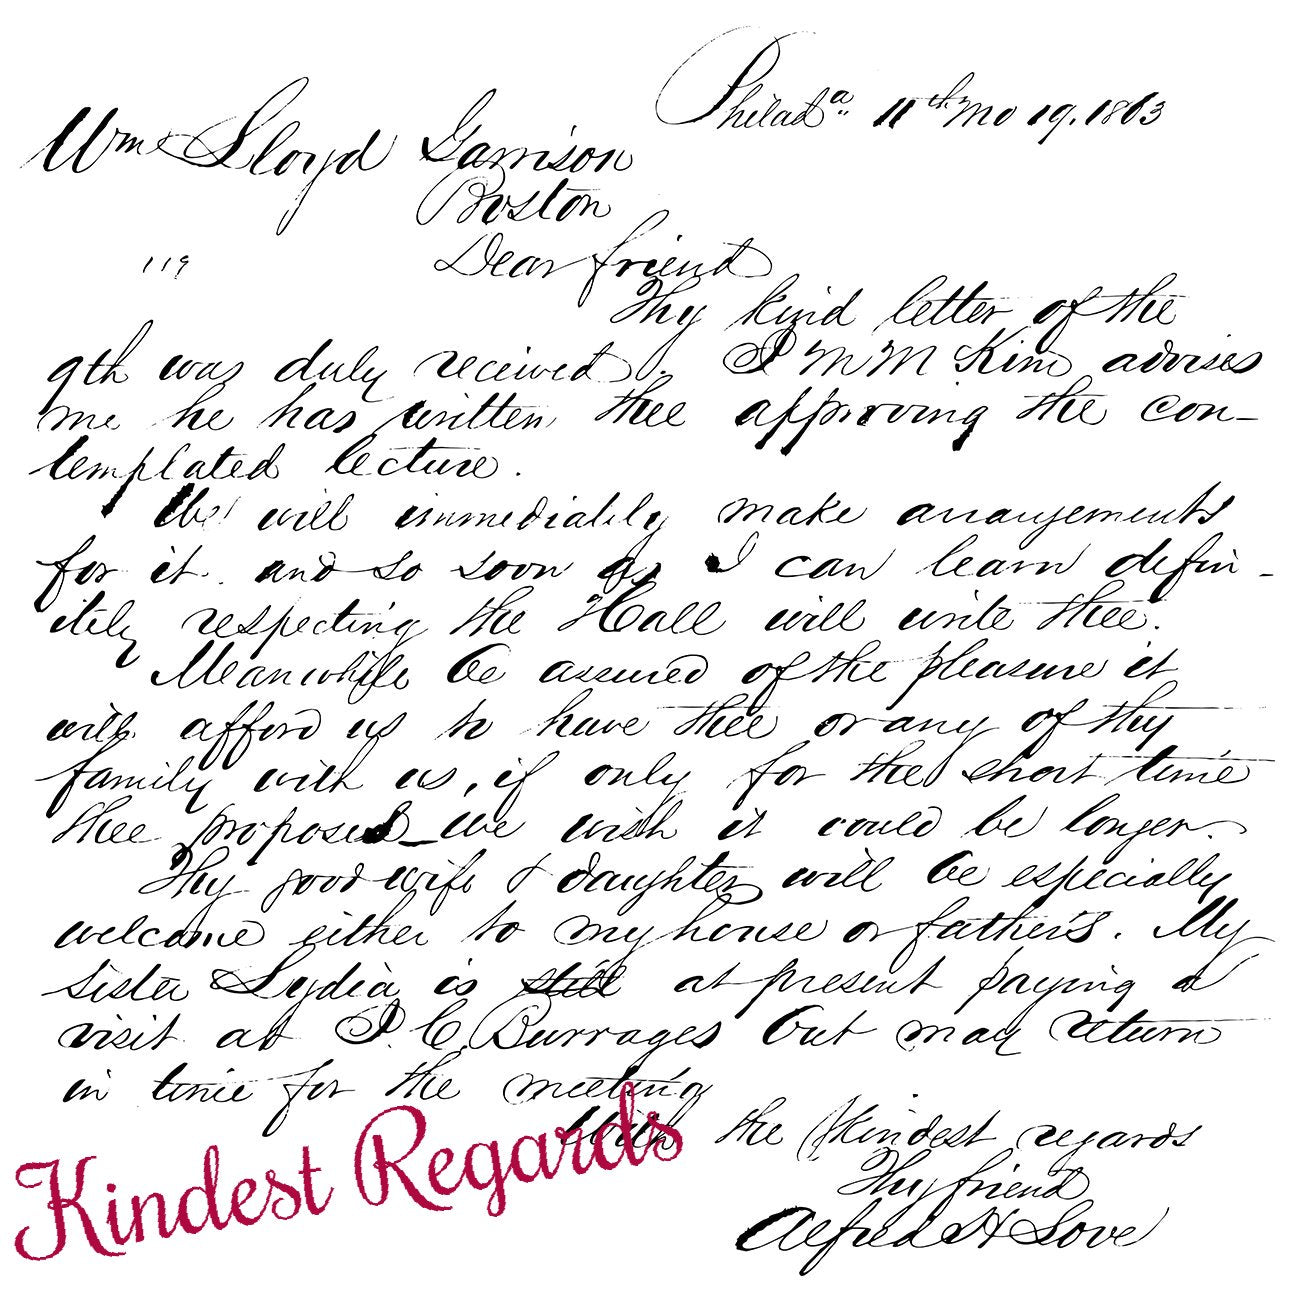 Philada. 11th Mo 19. 1863
Wm Lloyd Garrison
Boston
119
Dear friend
Thy kind letter of the
9th was duly received. J M McKim advises
me he has written thee approving the con-
templated lecture.
We will immediately make arrangements
for it. and so soon as I can learn defin-
itely respecting the Hall will write thee.
Meanwhile be assured of the pleasure it
will afford us to have thee or any of thy
family with us, if only for the short time
thee proposed_we wish it could be longer.
Thy good wife & daughter will be especially
welcome either to my house or father's. My
sister Lydia is still at present paying a
visit at J. C. Burrages but may return
in time for the meeting
With the kindest regards
Thy friend
Alfred H Love
Kindest Regards